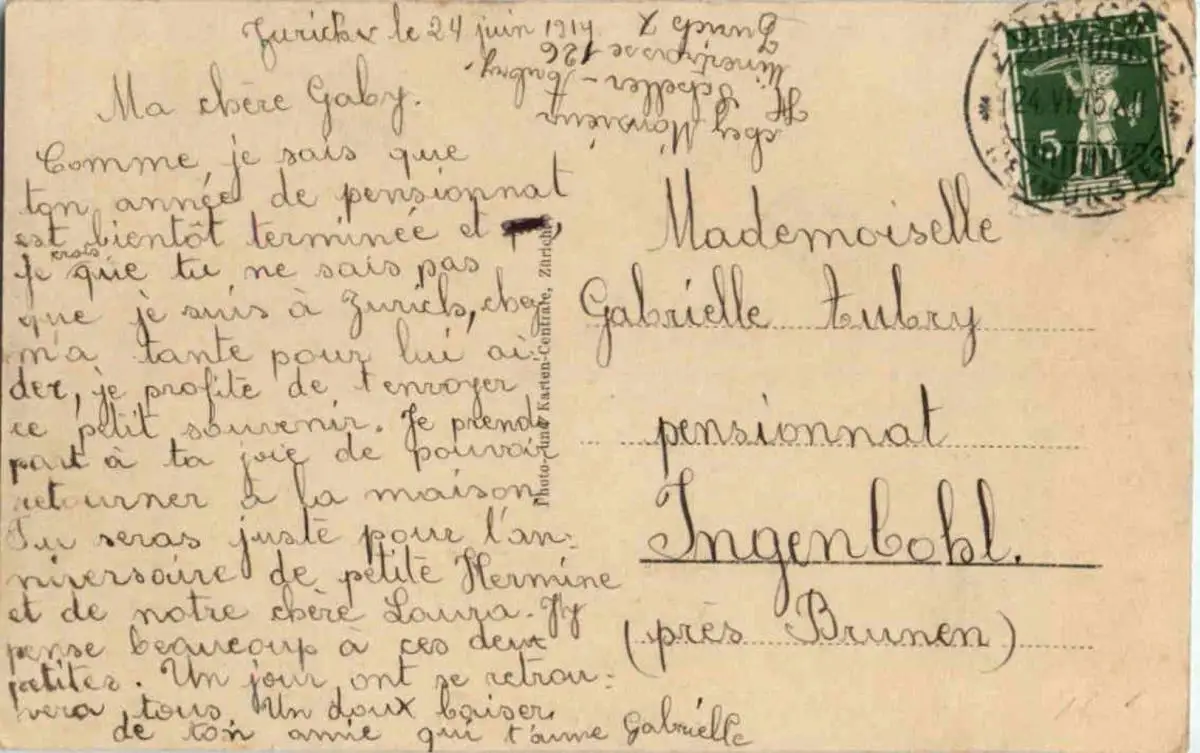 Zurich le 24 juin 1914
Ma chère Gaby.
Comme, je sais que
ton année de pensionnat
est bientôt terminée et
je crois que tu ne sais pas
que je suis à Zurich, chez
m'a tante pour lui ai-
der, je profite de t'envoyer
ce petit souvenir. Je prends
part à ta joie de pouvoir
retourner à la maison.
Tu seras juste pour l'an-
niversaire de petite Hermine
et de notre chère Laura. J'y
pense beaucoup à ces deux
petites. Un jour ont se retrou-
vera tous. Un doux baiser
de ton amie qui t'aime Gabrielle
chez Monsieur
H. Scheller-Aubry.
126
Zurich 7
Photo- und Karten-Centrale, Zürich
HELVETIA
5
Mademoiselle
Gabrielle Aubry
pensionnat
Ingenbohl.
(près Brunen)